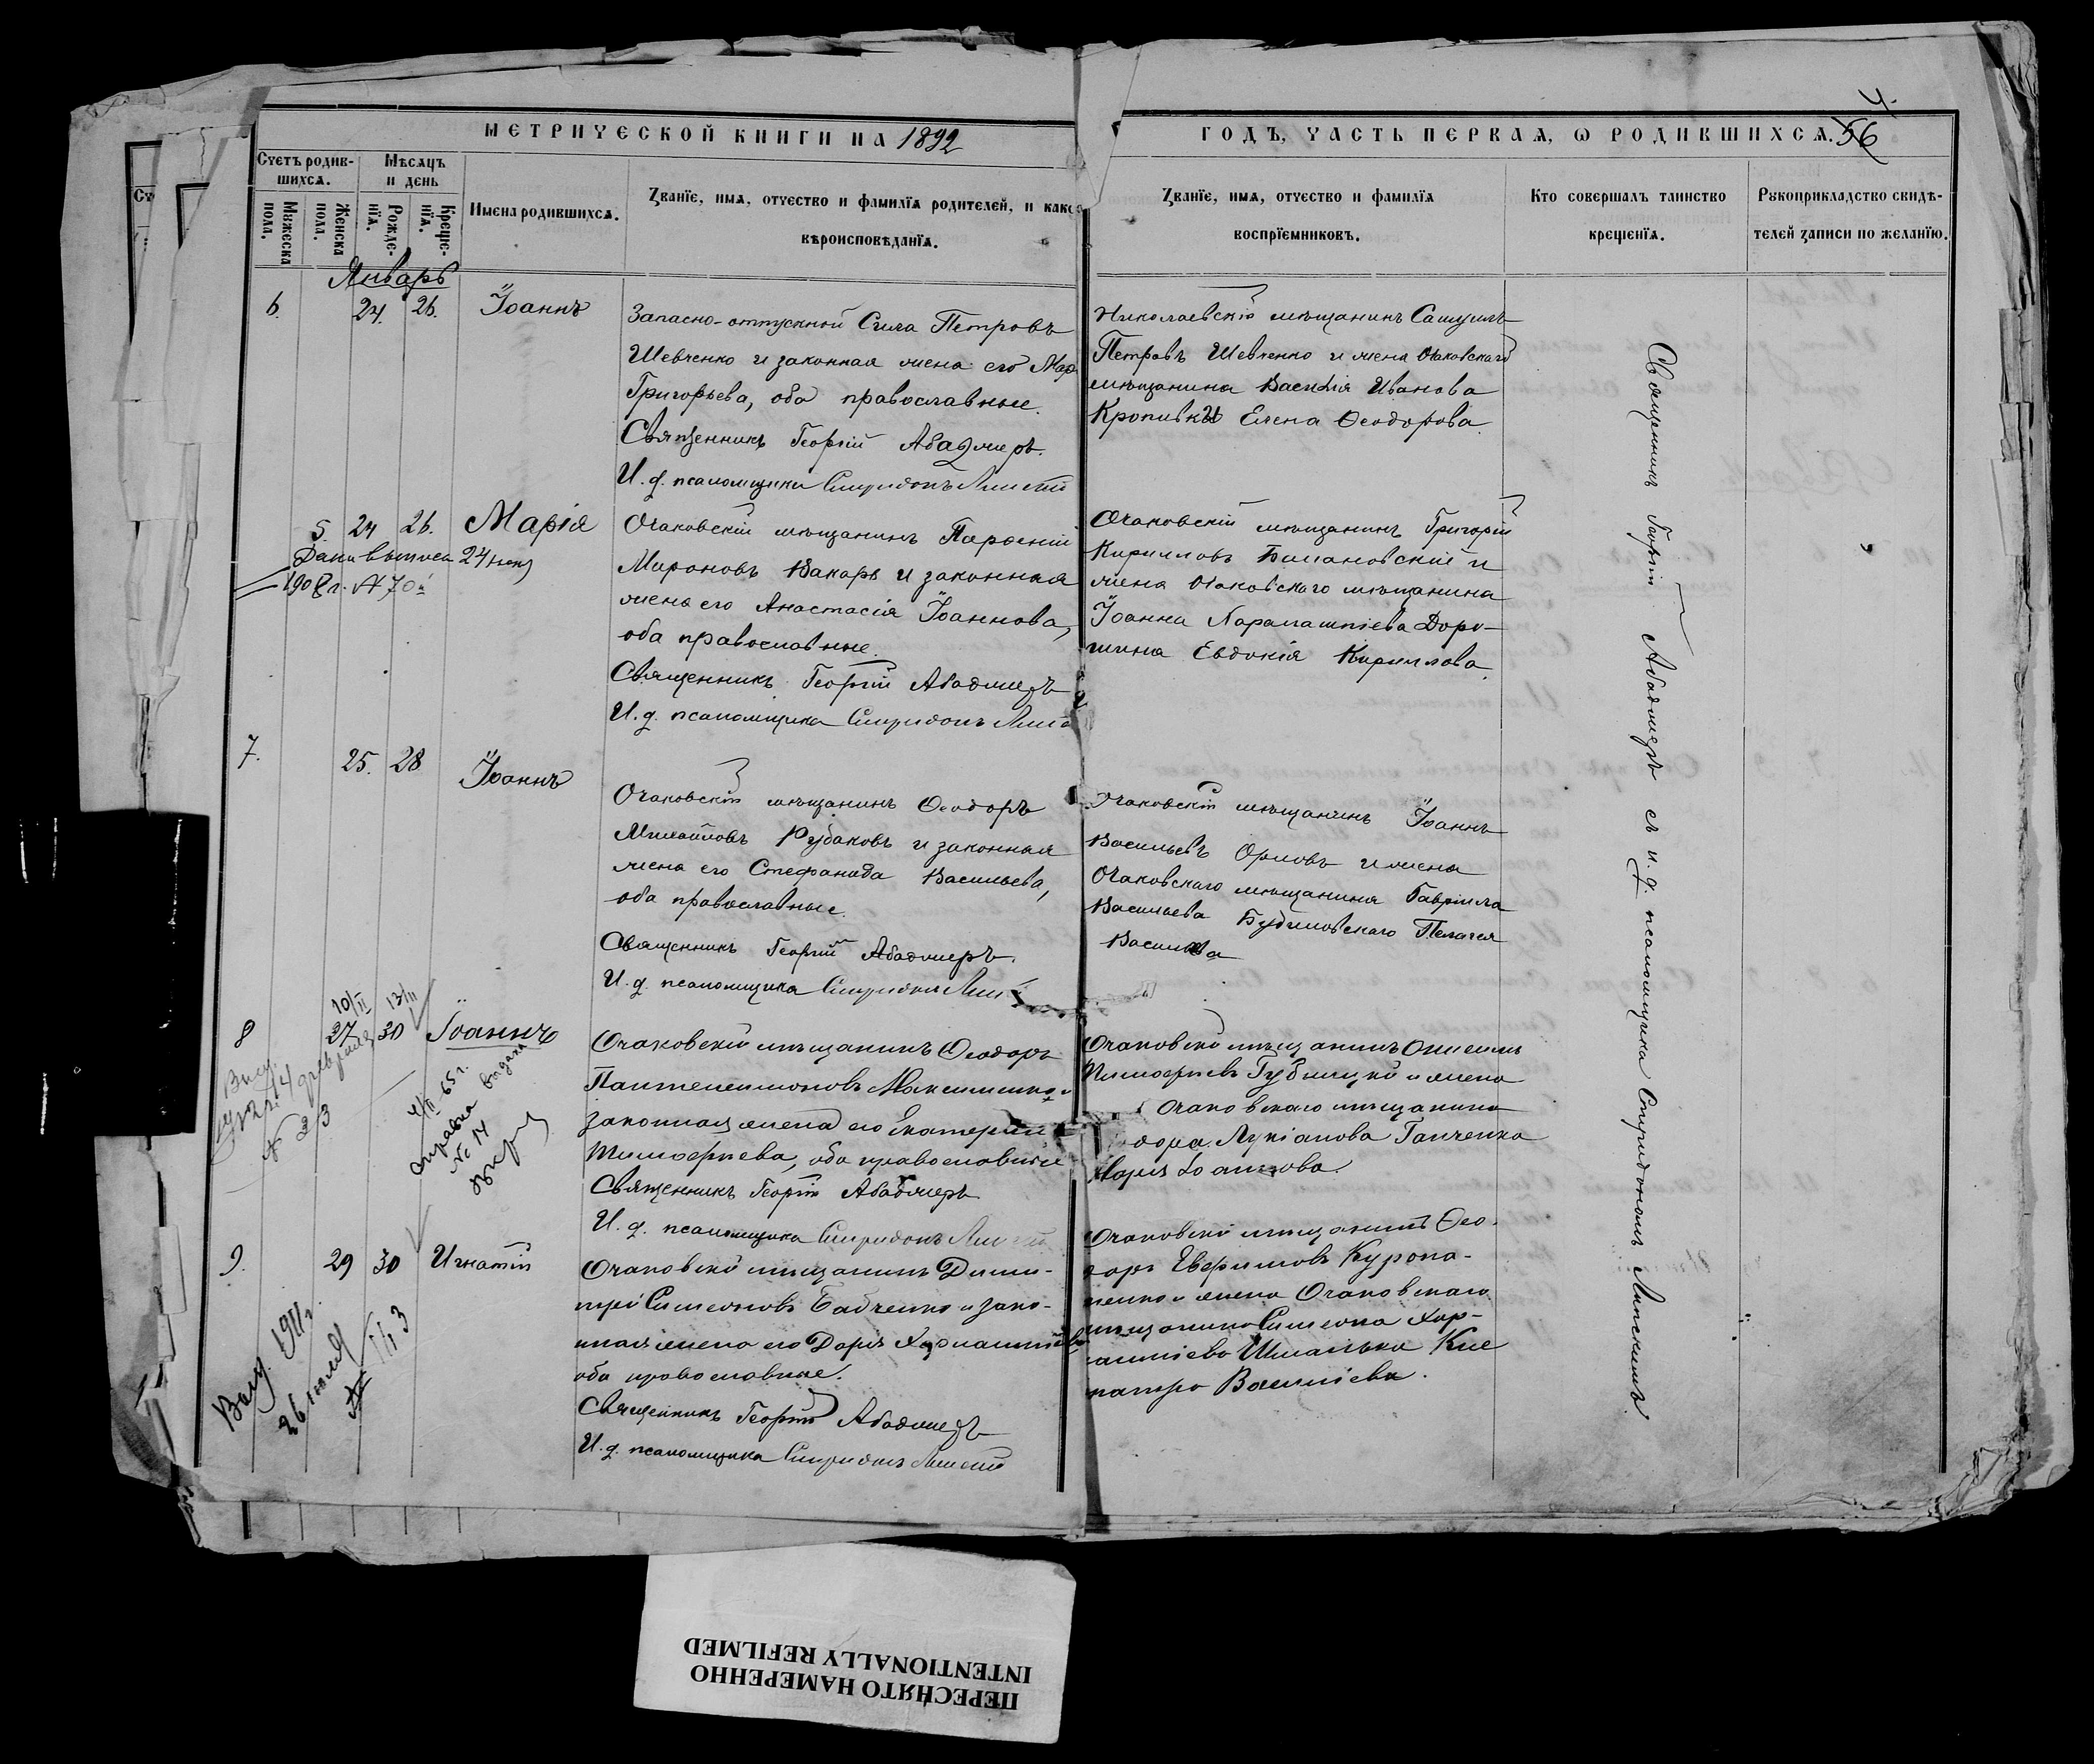 МЕТРИЧЕСКОЙ КНИГИ НА 1892
ГОДЪ, ЧАСТЬ ПЕРВАЯ, Ѡ РОДИВШИХСЯ. 56
Счетъ родив-
шихся.
Мѣсяцъ
и день
Мужеска
пола.
Женска
пола.
Рожде-
нїя.
Креще-
нїя.
Имена родившихся.
Званїе, имя, отчество и фамилїя родителей, и како
вѣроисповѣданїя.
Званїе, имя, отчество и фамилїя
воспрїемниковъ.
Кто совершалъ таинство
крещенїя.
Рукоприкладство свидѣ-
телей записи по желанїю.
Январь
6. 24. 26. Іоаннъ
Запасно-отпускной Сила Петровъ
Шевченко и законная жена его Мар
Григорьева, оба православные.
Священникъ Георгій Абаджеръ.
И. д. псаломщика Спиридонъ
Николаевскій мѣщанинъ Самуилъ
Петровъ Шевченко и жена Очаковскаго
мѣщанина Василія Иванова
Кропивки Елена Ѳеодорова.
5. 24 26. Марія
Дана выписъ 24
1908 г. № 70
Очаковскій мѣщанинъ Парѳеній
Мироновъ Вакарь и законная
жена его Анастасія Іоаннова,
оба православные.
Священникъ Георгій Абаджеръ
И. д. псаломщика Спиридонъ
Очаковскій мѣщанинъ Григорій
Кирилловъ Билановскій и
жена Очаковскаго мѣщанина
Іоанна Харалампіева Доро-
шина Евдокія Кириллова.
7. 25. 28 Іоаннъ
Очаковскій мѣщанинъ Ѳеодоръ
Михайловъ Рубаковъ и законная
жена его Стефанида Васильева,
оба православные.
Священникъ Георгій Абаджеръ.
И. д. псаломщика Спиридонъ
Очаковскій мѣщанинъ Іоаннъ
Васильевъ Орловъ и жена
Очаковскаго мѣщанина Гавріила
Васильева Пелагея
Васильева
10/II 13/II
8 27 30 Іоаннъ
14 февраля
№ 23
4/II 65 г.
справка выдана
№ 14
Очаковскій мѣщанинъ Ѳеодоръ
Пантелеимоновъ Максименко и
законная жена его Екатерина
Тимоѳеева, оба православные
Священникъ Георгій Абаджеръ
И. д. псаломщика Спиридонъ
Очаковскій мѣщанинъ Онисимъ
Тимоѳеевъ Губницкій и жена
Очаковскаго мѣщанина
Лукіанова Ганченка
Марія Іоаннова.
9. 29 30 Игнатій
Выд. 1911 г.
26 іюля
№ 1113
Очаковскій мѣщанинъ Дими-
трій Симеоновъ Бабченко и зако-
нная жена его Дарія
оба православные.
Священникъ Георгій Абаджеръ
И. д. псаломщика Спиридонъ
Очаковскій мѣщанинъ Ѳео-
доръ Евѳимовъ Куропа-
тенко и жена Очаковскаго
мѣщанина Симеона Хар-
лампіева Шмалька Клео
патра Васильева.
Священникъ Георгій Абаджеръ съ и. д. псаломщика Спиридономъ Липскимъ.
ПЕРЕСНЯТО НАМЕРЕННО
INTENTIONALLY REFILMED